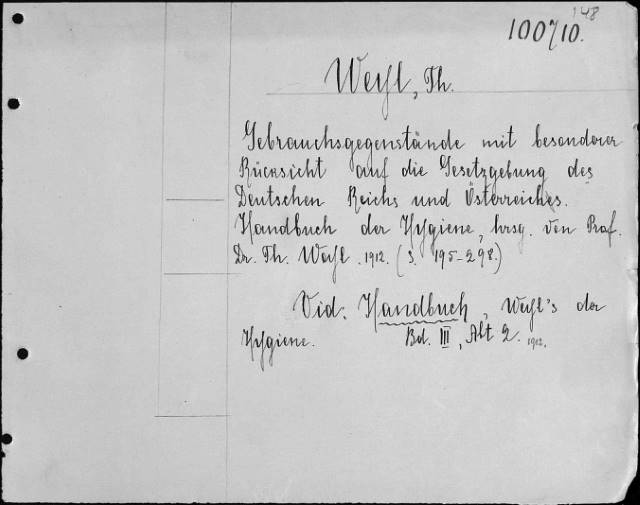 148
100710.
Weyl, Th.
Gebrauchsgegenstände mit besonderer
Rücksicht auf die Gesetzgebung des
Deutschen Reichs und Österreiches.
Handbuch der Hygiene, hrsg. von Prof.
Dr. Th. Weyl. 1912. (S. 195-298.)
Vid. Handbuch, Weyl's der
Hygiene. Bd. III, Abt 2. 1912.